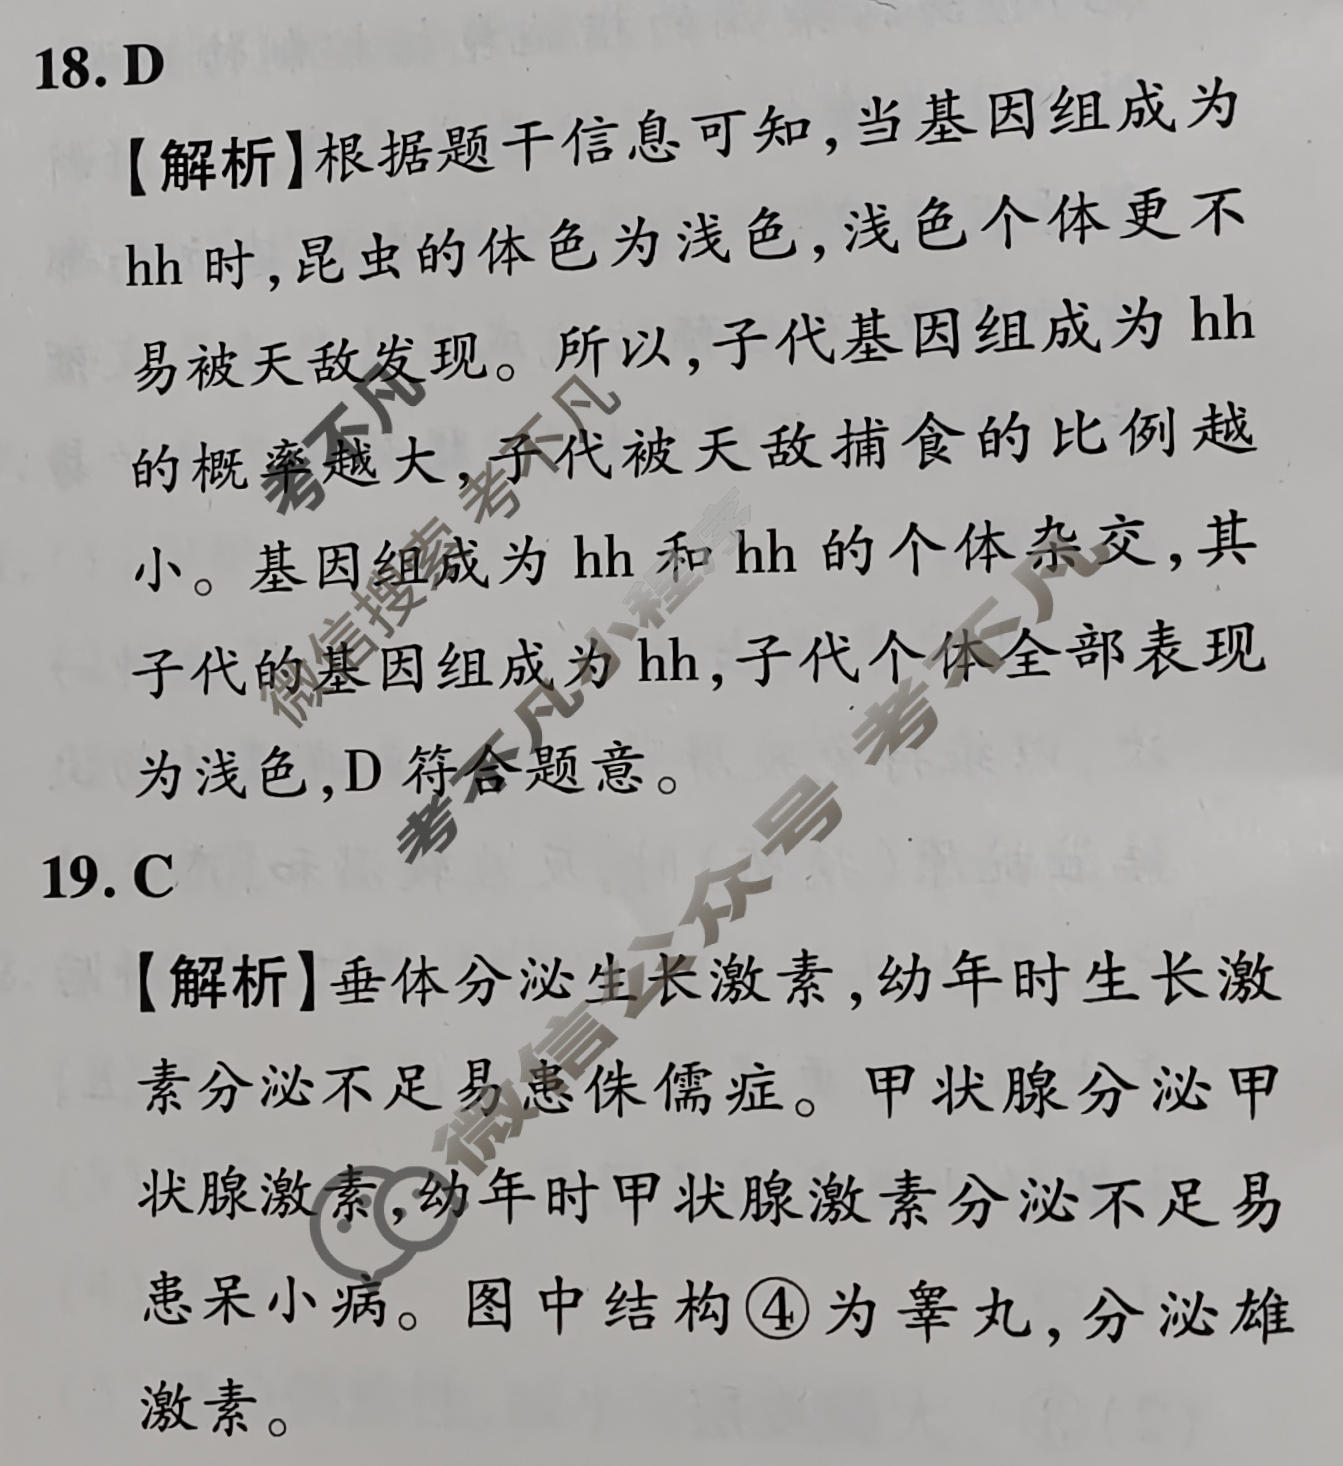 18. D
【解析】根据题干信息可知,当基因组成为
hh 时,昆虫的体色为浅色,浅色个体更不
易被天敌发现。所以,子代基因组成为 hh
的概率越大,子代被天敌捕食的比例越
小。基因组成为 hh 和 hh 的个体杂交,其
子代的基因组成为 hh,子代个体全部表现
为浅色,D 符合题意。
19. C
【解析】垂体分泌生长激素,幼年时生长激
素分泌不足易患侏儒症。甲状腺分泌甲
状腺激素,幼年时甲状腺激素分泌不足易
患呆小病。图中结构④为睾丸,分泌雄
激素。
考不凡
微信搜索 考不凡
考不凡小程序
微信公众号 考不凡